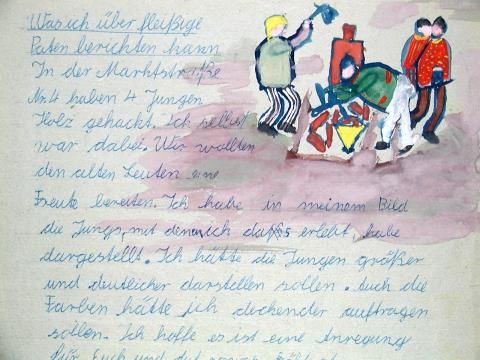 Was ich über fleißige
Paten berichten kann
In der Marktstraße
Nr.4 haben 4 Jungen
Holz gehackt. Ich selbst
war dabei. Wir wollten
den alten Leuten eine
Freute bereiten. Ich habe in meinem Bild
die Jungs, mit denen ich das erlebt habe
dargestellt. Ich hätte die Jungen größer
und deutlicher darstellen sollen. Auch die
Farben hätte ich deckender auftragen
sollen. Ich hoffe es ist eine Anregung
für Euch und